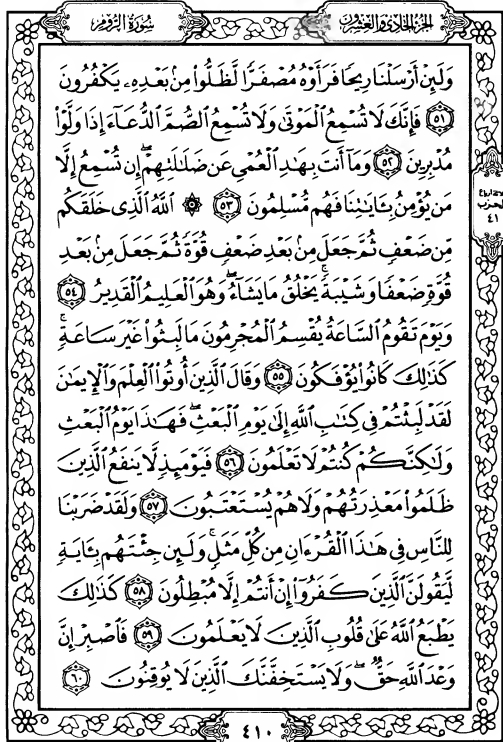 الجزء الحادي والعشرون
سورة الروم
وَلَئِنْ أَرْسَلْنَا رِيحًا فَرَأَوْهُ مُصْفَرًّا لَّظَلُّوا۟ مِنۢ بَعْدِهِۦ يَكْفُرُونَ
٥١ فَإِنَّكَ لَا تُسْمِعُ ٱلْمَوْتَىٰ وَلَا تُسْمِعُ ٱلصُّمَّ ٱلدُّعَآءَ إِذَا وَلَّوْا۟
مُدْبِرِينَ ٥٢ وَمَآ أَنتَ بِهَٰدِ ٱلْعُمْىِ عَن ضَلَٰلَتِهِمْ ۖ إِن تُسْمِعُ إِلَّا
مَن يُؤْمِنُ بِـَٔايَٰتِنَا فَهُم مُّسْلِمُونَ ٥٣ ۞ ٱللَّهُ ٱلَّذِى خَلَقَكُم
مِّن ضَعْفٍ ثُمَّ جَعَلَ مِنۢ بَعْدِ ضَعْفٍ قُوَّةً ثُمَّ جَعَلَ مِنۢ بَعْدِ
قُوَّةٍ ضَعْفًا وَشَيْبَةً ۚ يَخْلُقُ مَا يَشَآءُ ۖ وَهُوَ ٱلْعَلِيمُ ٱلْقَدِيرُ ٥٤
وَيَوْمَ تَقُومُ ٱلسَّاعَةُ يُقْسِمُ ٱلْمُجْرِمُونَ مَا لَبِثُوا۟ غَيْرَ سَاعَةٍ ۚ
كَذَٰلِكَ كَانُوا۟ يُؤْفَكُونَ ٥٥ وَقَالَ ٱلَّذِينَ أُوتُوا۟ ٱلْعِلْمَ وَٱلْإِيمَٰنَ
لَقَدْ لَبِثْتُمْ فِى كِتَٰبِ ٱللَّهِ إِلَىٰ يَوْمِ ٱلْبَعْثِ ۖ فَهَٰذَا يَوْمُ ٱلْبَعْثِ
وَلَٰكِنَّكُمْ كُنتُمْ لَا تَعْلَمُونَ ٥٦ فَيَوْمَئِذٍ لَّا يَنفَعُ ٱلَّذِينَ
ظَلَمُوا۟ مَعْذِرَتُهُمْ وَلَا هُمْ يُسْتَعْتَبُونَ ٥٧ وَلَقَدْ ضَرَبْنَا
لِلنَّاسِ فِى هَٰذَا ٱلْقُرْءَانِ مِن كُلِّ مَثَلٍ ۚ وَلَئِن جِئْتَهُم بِـَٔايَةٍ
لَّيَقُولَنَّ ٱلَّذِينَ كَفَرُوٓا۟ إِنْ أَنتُمْ إِلَّا مُبْطِلُونَ ٥٨ كَذَٰلِكَ
يَطْبَعُ ٱللَّهُ عَلَىٰ قُلُوبِ ٱلَّذِينَ لَا يَعْلَمُونَ ٥٩ فَٱصْبِرْ إِنَّ
وَعْدَ ٱللَّهِ حَقٌّ ۖ وَلَا يَسْتَخِفَّنَّكَ ٱلَّذِينَ لَا يُوقِنُونَ ٦٠
الحزب
٤١
٤١٠